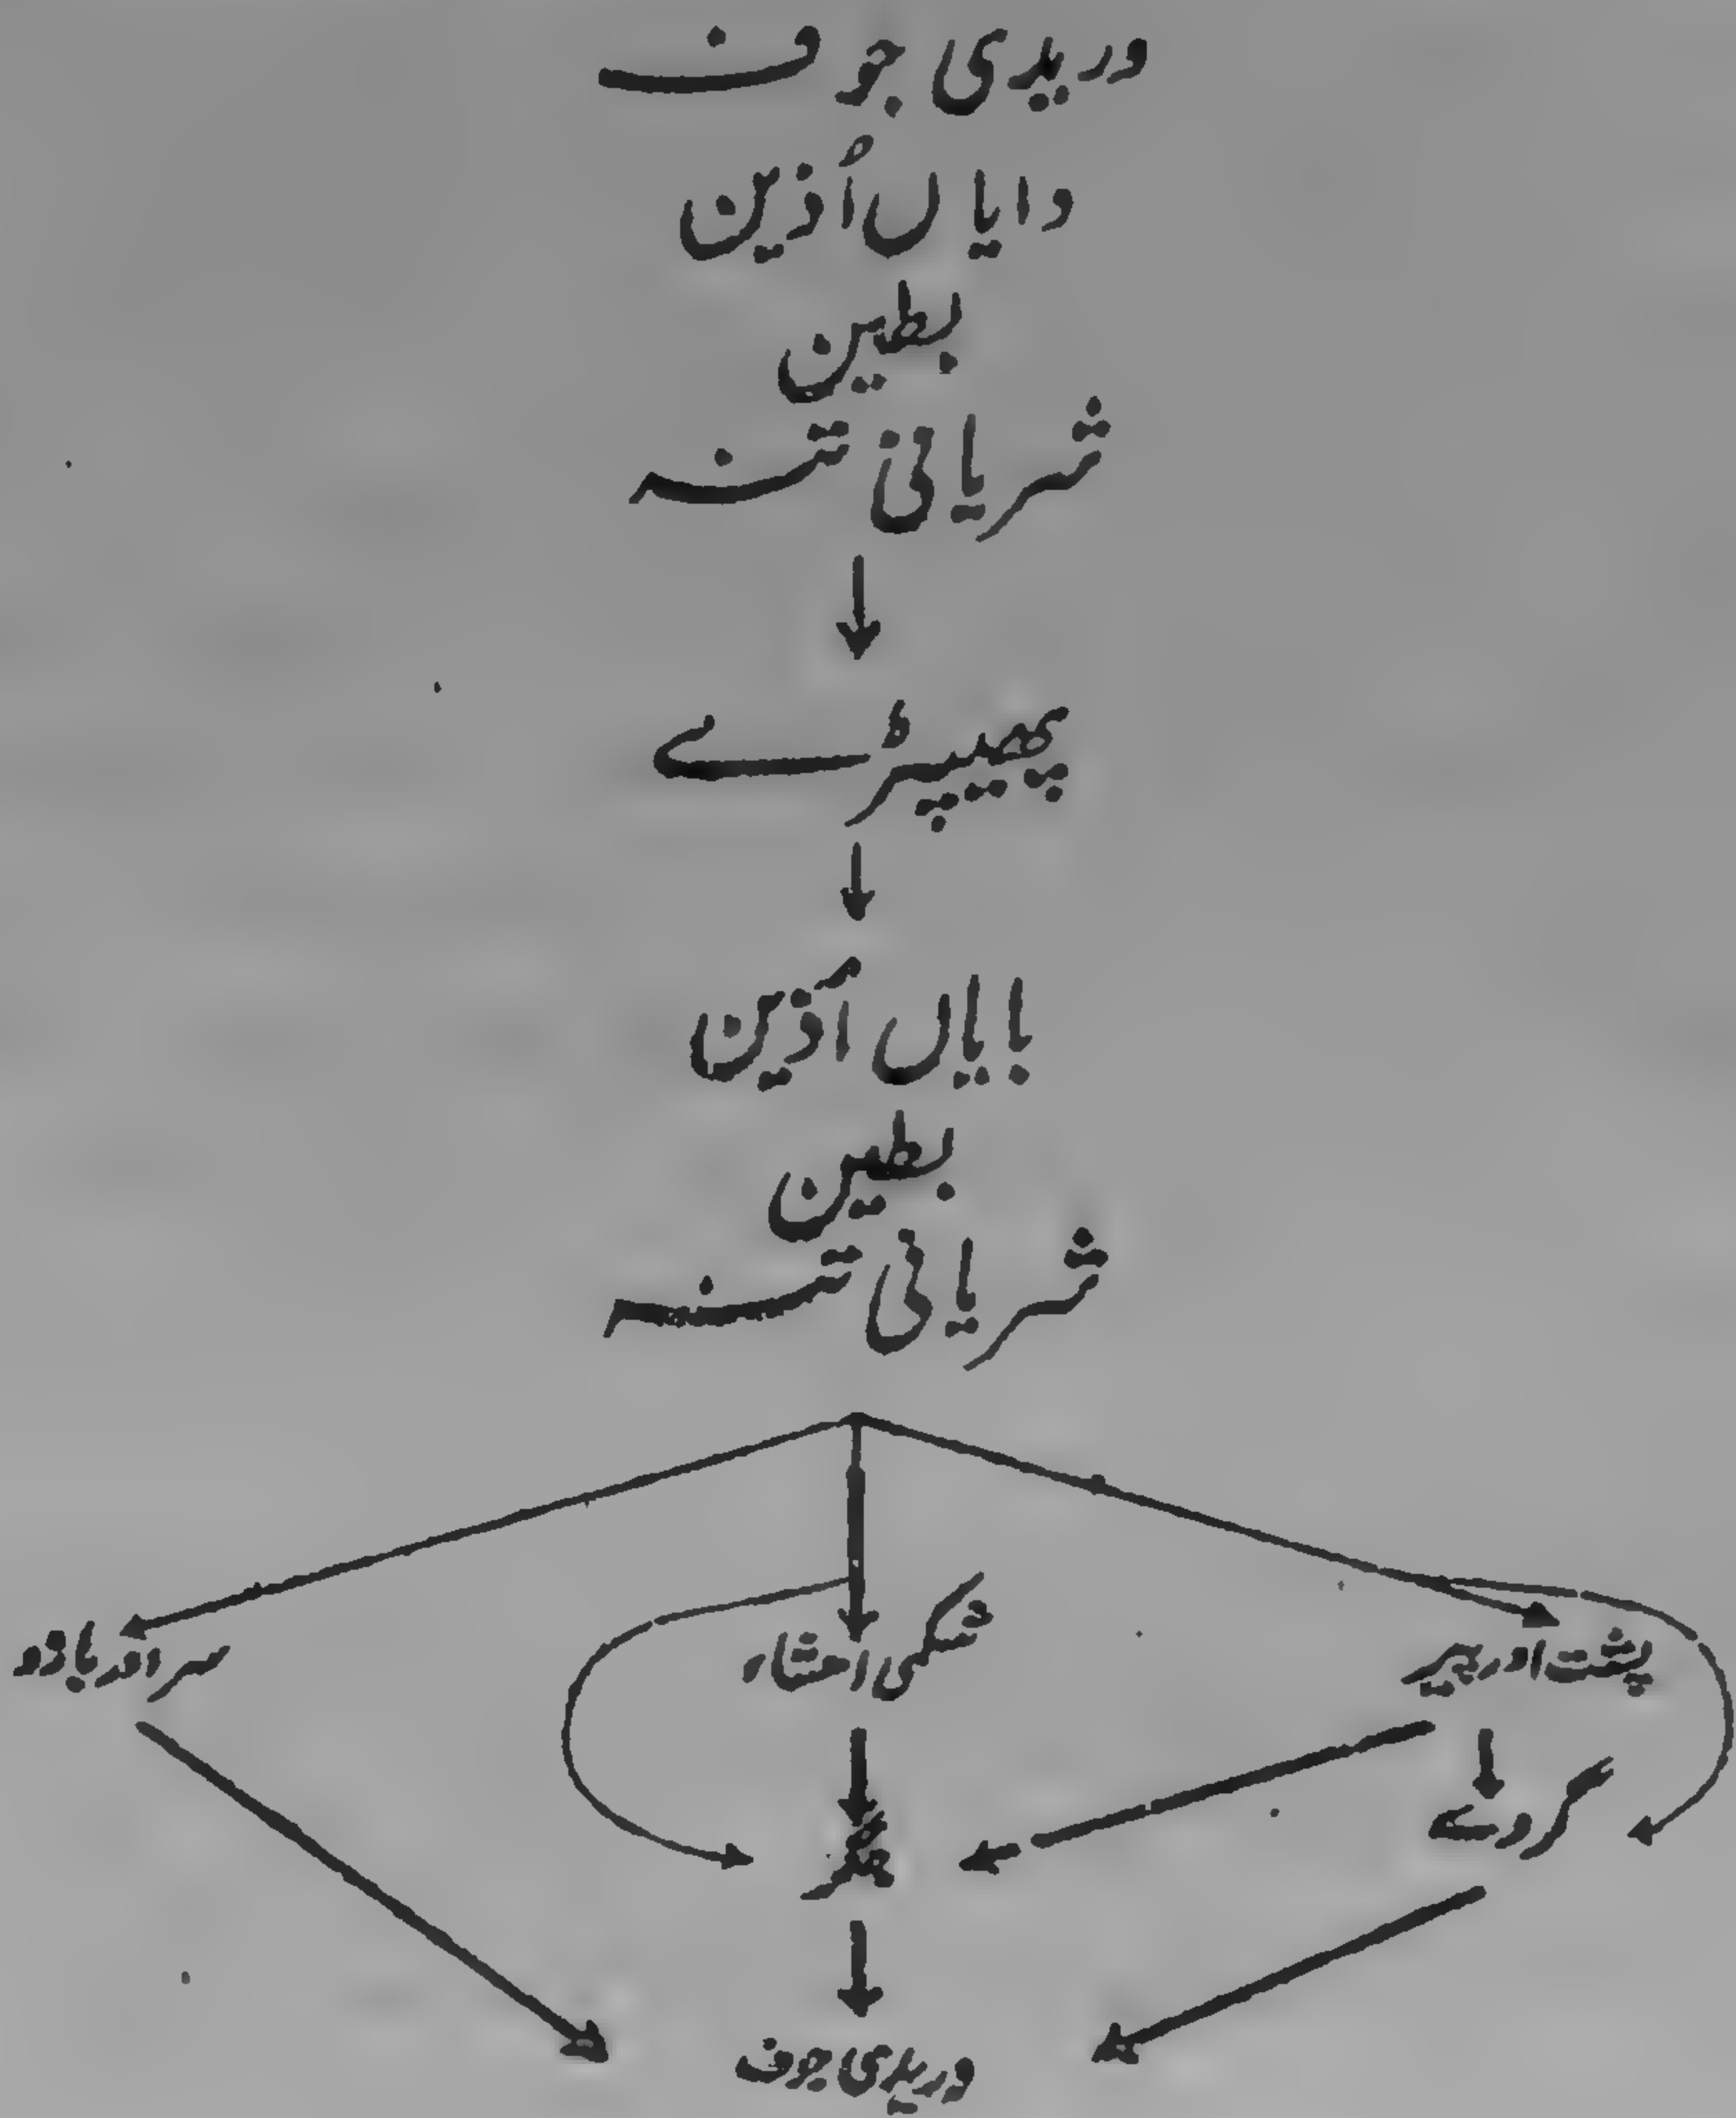 وریدی جوف
دایاں اُذین
بطین
شریانی تنہ
پھیپڑے
بایاں اُذین
بطین
شریانی تنہ
پشت اور پیر
شکمی احشاء
سر اور بازو
گردے
جگر
وریدی جوف